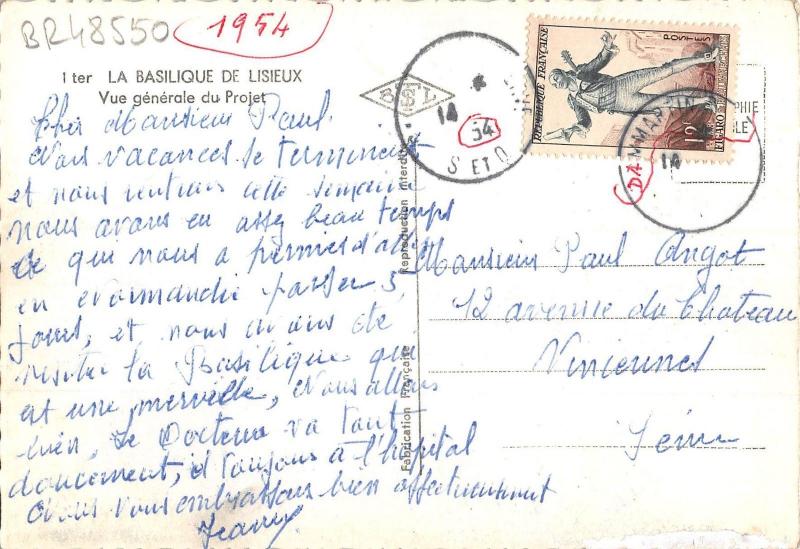 BR48550
1954
1 ter LA BASILIQUE DE LISIEUX
Vue générale du Projet
B L
Cher Monsieur Paul
Nos vacances se terminent
et nous rentrons cette semaine
nous avons eu assez beau temps
ce qui nous a permis d'aller
en Normandie passer 5
jours, et nous avons été
visiter la Basilique qui
est une merveille, Nous allons
bien, Le Docteur va tout
doucement, et toujours à l'hopital
Nous vous embrassons bien affectueusement
Jeanne
Reproduction Interdite
Fabrication Française
14
54
S ET O
REPUBLIQUE FRANÇAISE
POSTES
12F
FIGARO
DAMMARTIN
14
Monsieur Paul Angot
12 avenue du Chateau
Vincennes
Seine